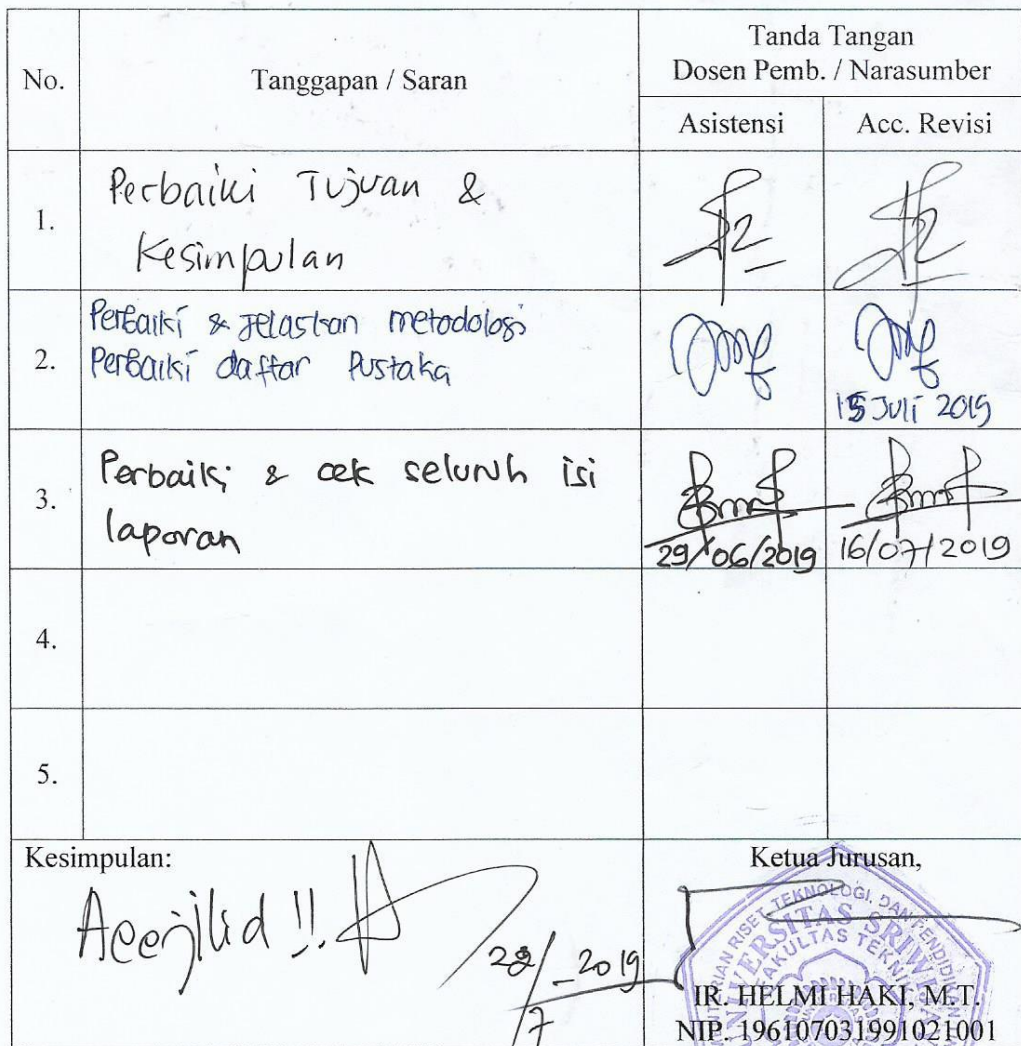 No.
Tanggapan / Saran
Tanda Tangan
Dosen Pemb. / Narasumber
Asistensi
Acc. Revisi
1.
Perbaiki Tujuan &
Kesimpulan
2.
Perbaiki & Jelaskan metodologi
Perbaiki daftar Pustaka
15 Juli 2019
3.
Perbaiki & cek seluruh isi
laporan
29/06/2019
16/07/2019
4.
5.
Kesimpulan:
jilid !!
2019
7
Ketua Jurusan,
RISET, TEKNOLOGI, DAN PENDIDIKAN
UNIVERSITAS SRIWIJAYA
FAKULTAS TEKNIK
IR. HELMI HAKI, M.T.
NIP. 196107031991021001